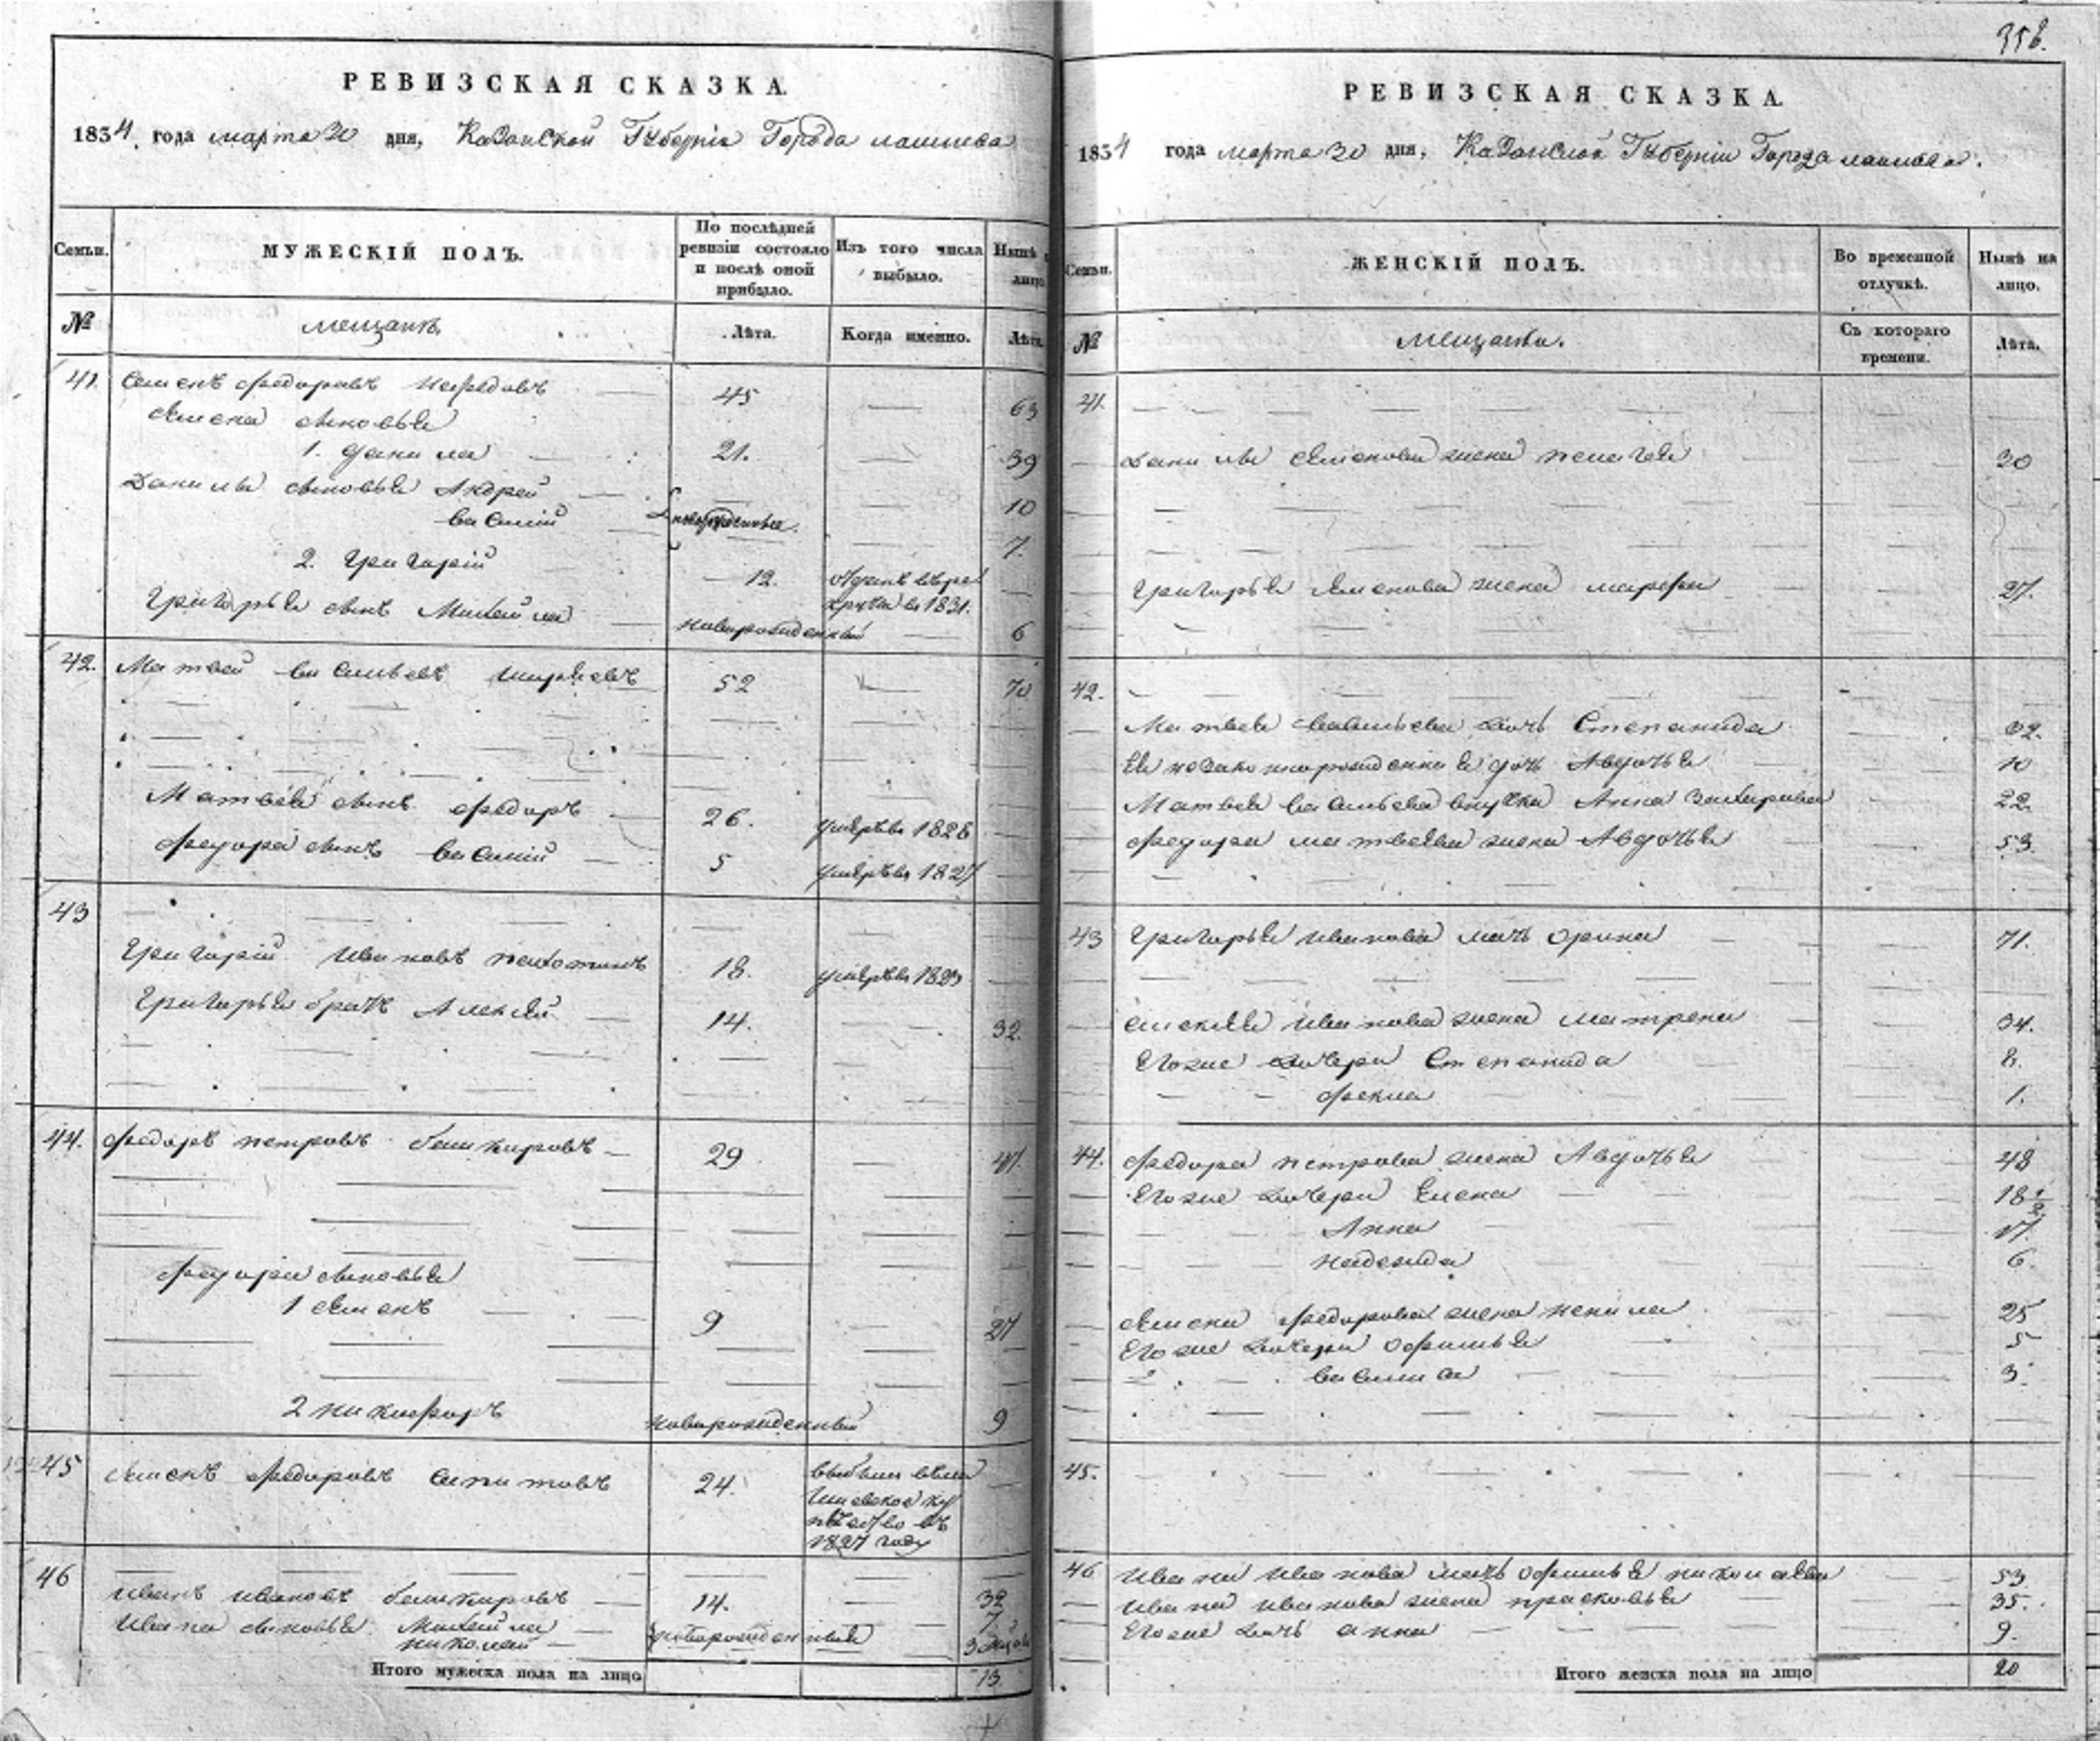 358.
РЕВИЗСКАЯ СКАЗКА.
1834 года марта 30 дня, Казанской Губерніи Города лаишева
Семьи. МУЖЕСКІЙ ПОЛЪ. По послѣдней ревизіи состояло и послѣ оной прибыло. Изъ того числа выбыло. Нынѣ лицо
№ мещанъ Лѣта. Когда именно. Лѣта.
41. Семенъ Федоровъ 45 — 63
Семена сыновья
1. Данила 21. — 39
Данилы сыновья Андрей — 10
василій новорожденные. — 7.
2. Григорій 12. отданъ въ рекруты въ 1831.
Григорья сынъ Михайла новорожденный — 6
42. Матвей васильевъ 52 — 70
Матвея сынъ Федоръ 26. умеръ въ 1828
Федора сынъ василій 5 умеръ въ 1827
43
Григорій Ивановъ 18. умеръ въ 1823
Григорья братъ Алексей 14. — 32.
44. Федоръ петровъ башкировъ 29 — 47.
Федора сыновья
1 Семенъ 9 27
2 никифоръ новорожденный 9
45 Семенъ Федоровъ 24. выбылъ въ купечество въ 1827 году
46
Иванъ Ивановъ башкировъ 14. — 32
Ивана сыновья Михайла 7
николай новорожденные 3
Итого мужеска пола на лицо 13
РЕВИЗСКАЯ СКАЗКА.
1834 года марта 30 дня, Казанской Губерніи Города лаишева.
Семьи. ЖЕНСКІЙ ПОЛЪ. Во временной отлучкѣ. Нынѣ на лицо.
№ мещанки. Съ котораго времени. Лѣта.
41.
Данилы Семенова жена пелагея 30
Григорья Семенова жена марфа 27.
42.
Матвея васильева дочь Степанида 32.
Ея незаконнорожденная дочь Авдотья 10
Матвея васильева внучка Анна 22
Федора матвеева жена Авдотья 53.
43 Григорья Иванова мать орина 71.
Алексея Иванова жена матрена 34.
Егоже дочери Степанида 8.
Фекла 1.
44. Федора петрова жена Авдотья 48
Егоже дочери Елена 18½
Анна 17.
надежда 6.
Семена Федорова жена ненила 25
Егоже дочери офимья 5
василиса 3.
45.
46 Ивана Иванова мать офимья николаева 53
Ивана Иванова жена прасковья 35.
Егоже дочь анна 9.
Итого женска пола на лицо 20